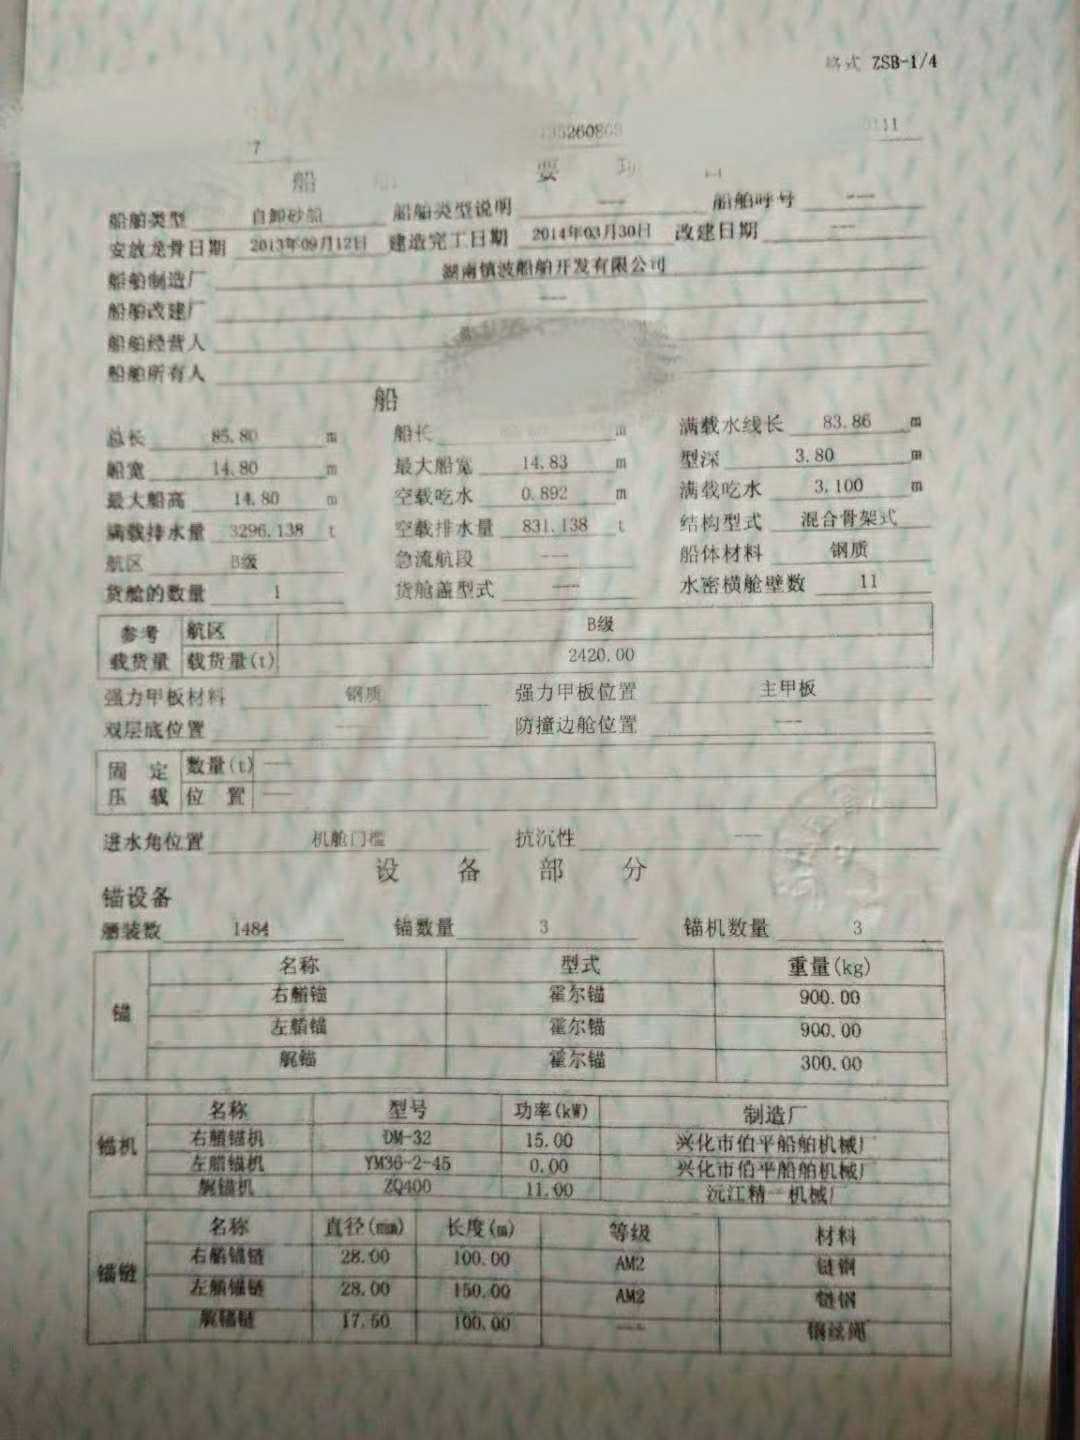 格式 ZSB-1/4
7 135260869 0111
船 要
船舶类型 自卸砂船 船舶类型说明 --- 船舶呼号 ---
安放龙骨日期 2013年09月12日 建造完工日期 2014年03月30日 改建日期 ---
船舶制造厂 湖南镇波船舶开发有限公司
船舶改建厂 ---
船舶经营人
船舶所有人
船
总长 85.80 m 船长 m 满载水线长 83.86 m
船宽 14.80 m 最大船宽 14.83 m 型深 3.80 m
最大船高 14.80 m 空载吃水 0.892 m 满载吃水 3.100 m
满载排水量 3296.138 t 空载排水量 831.138 t 结构型式 混合骨架式
航区 B级 急流航段 --- 船体材料 钢质
货舱的数量 1 货舱盖型式 --- 水密横舱壁数 11
参考 航区 B级
载货量 载货量(t) 2420.00
强力甲板材料 钢质 强力甲板位置 主甲板
双层底位置 --- 防撞边舱位置 ---
固定 数量(t) ---
压载 位置 ---
进水角位置 机舱门槛 抗沉性 ---
设备部分
锚设备
舾装数 1484 锚数量 3 锚机数量 3
名称 型式 重量(kg)
右艏锚 霍尔锚 900.00
锚
左艏锚 霍尔锚 900.00
艉锚 霍尔锚 300.00
名称 型号 功率(kW) 制造厂
锚机 右艏锚机 DM-32 15.00 兴化市伯平船舶机械厂
左艏锚机 YM36-2-45 0.00 兴化市伯平船舶机械厂
艉锚机 ZQ400 11.00 沅江精一机械厂
名称 直径(mm) 长度(m) 等级 材料
右艏锚链 28.00 100.00 AM2 链钢
锚链
左艏锚链 28.00 150.00 AM2 链钢
艉锚链 17.50 100.00 --- 钢丝绳